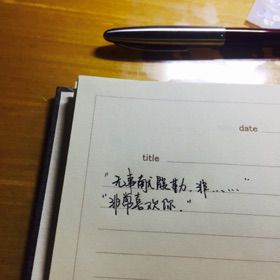 date
title
"无事献殷勤,非……"
"非常喜欢你."